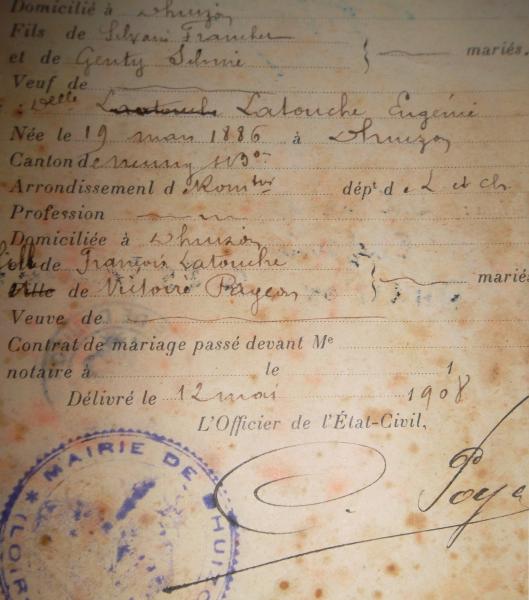 Domicilié à Dhuizon
Fils de Silvain Francher
et de Genty Silvine mariés.
Veuf de
Et Delle Latouche Latouche Eugénie
Née le 19 mars 1886 à Dhuizon
Canton de Neung s/B on
Arrondissement d Rom tin dép t d L et Ch
Profession
Domiciliée à Dhuizon
Fille de François Latouche
Ville de Victoire Pageon mariés
Veuve de
Contrat de mariage passé devant Me
notaire à le 1
Délivré le 12 mai 1908
L'Officier de l'État-Civil,
MAIRIE DE DHUIZON (LOIR